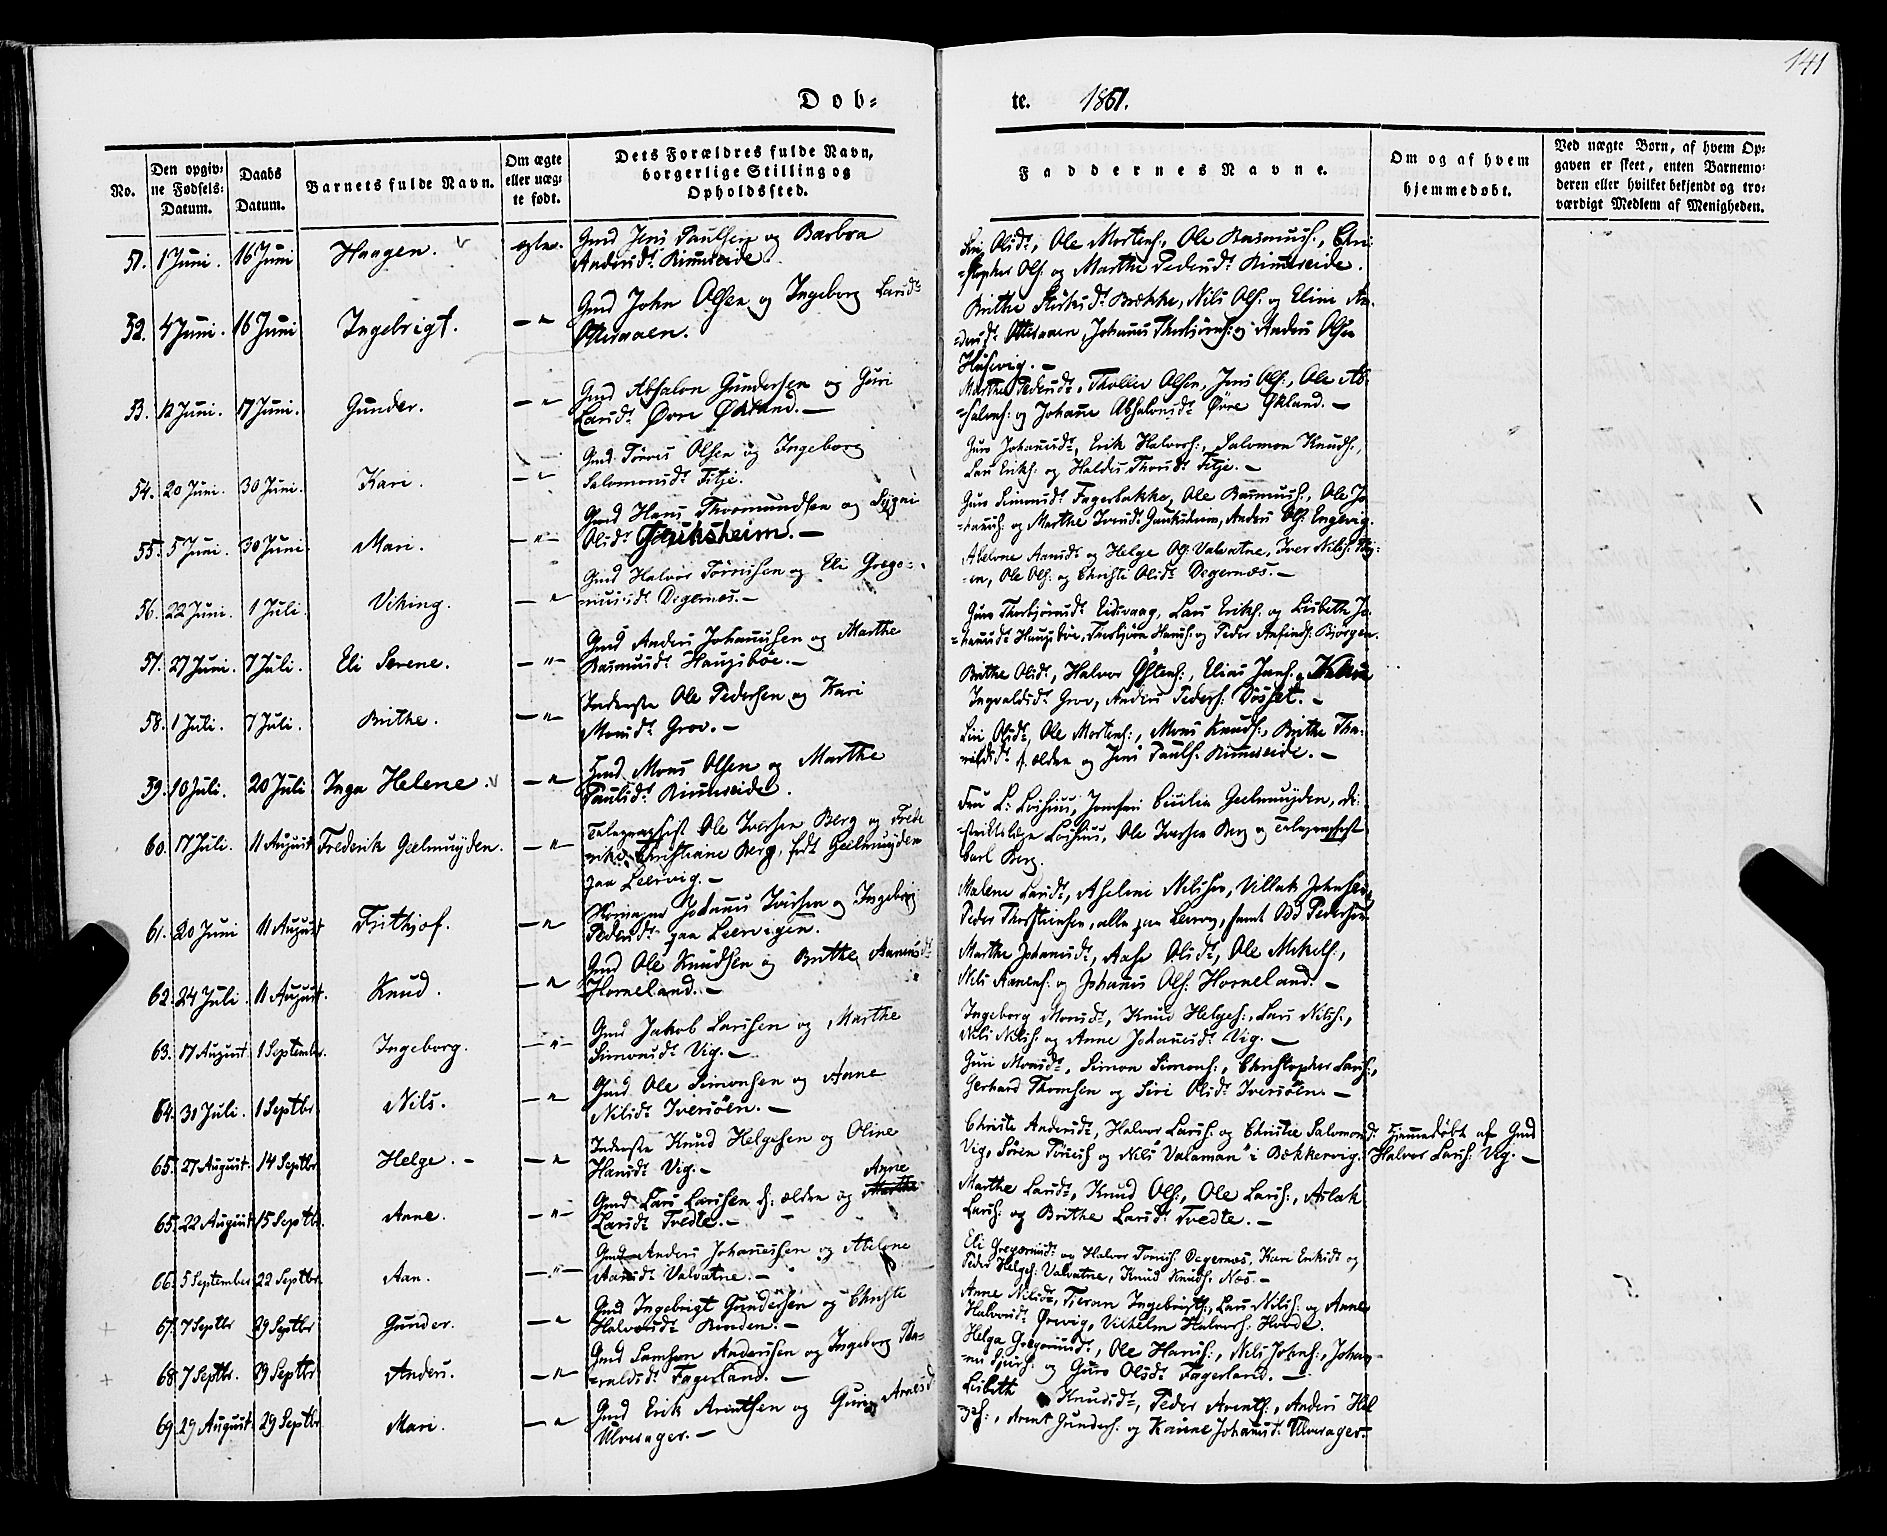 141
Døb=
te. 1861.
No.
Den opgiv=
ne Fødsels=
Datum.
Daabs
Datum.
Barnets fulde Navn.
Om ægte
eller uæg=
te født.
Dets Forældres fulde Navn,
borgerlige Stilling og
Opholdssted.
Faddernes Navne.
Om og af hvem
hjemmedøbt.
Ved uægte Børn, af hvem Op=
gaven er skeet, enten Barnemo=
deren eller hvilket bekjendt og tro=
værdigt Medlem af Menigheden.
51. 1 Juni. 16 Juni Haagen. ægte.
Gmd Jens Paulsen og Barbra
Andersdr. Rimereide.
Siri Olsdr., Ole Mortens., Ole Rasmuss., Chri=
=stopher Ols. og Marthe Pedersdr. Rimereide.
52. 4 Juni. 16 Juni Ingebrigt. — " —
Gmd John Olsen og Ingeborg Larsdr.
Otteraaen.
Brithe Bække, Nils Ols. og Eline An=
=dersdr. Otteraaen, Johannes Thorbjørns. og Anders Olsen
Husevig. —
53. 12 Juni. 17 Juni. Gunder. — " —
Gmd Absalon Gundersen og Guri
Larsdr. Øvre Økland. —
Marthe Pedersdr., Tollev Olsen, Jens Ols., Ole Ab=
=salons. og Johanne Absalonsdr. Øvre Økland. —
54. 20 Juni. 30 Juni. Kari. — " —
Gmd. Tørres Olsen og Ingeborg
Salomonsdr. Fitje.
Guro Johannesdr., Erik Halvors., Salomon Knuds.,
Lars Eriks. og Haldis Thorsdr. Fitje. —
55. 5 Juni. 30 Juni. Mari. — " —
Gmd Hans Thormundsen og Signi
Olsdr. Gauksheim. —
Guro Simonsdr. Fagerbakke, Ole Rasmuss., Ole Jo=
=hannes. og Marthe Iversdr. Gauksheim, Anders Ols. Engevig.
56. 22 Juni. 1 Juli. Viking. — " —
Gmd Halvor Tørrisen og Eli Grego=
=riusdr. Degernes. —
Abelone Aanesdr. og Helge Ols. Valvatne, Iver Nils.
=en, Ole Ols. og Christi Olsdr. Degernæs. —
57. 27 Juni. 7 Juli. Eli Serene. — " —
Gmd Anders Johannessen og Marthe
Rasmusdr. Haugsbøe. —
Guro Thorbjørnsdr. Eidsvaag, Lars Eriks. og Lisbeth Jo=
=hannesdr. Haugsbøe, Thorbjørn Hans. og Peder Anfinds. Bjorgen.
58. 1 Juli. 7 Juli. Brithe. — " —
Inderste Ole Pedersen og Kari
Monsdr. Grov. —
Brithe Olsdr., Halvor Østens., Elias Jans.,
Ingvaldsdr. Grov, Anders Peders. Dosset. —
59. 10 Juli. 20 Juli Inga Helene. — " —
Gmd Mons Olsen og Marthe
Paulsdr. Rimereide.
Siri Olsdr., Ole Mortens., Mons Knuds., Brithe Tho=
=rildsdr. d. ældre og Jens Pauls. Rimereide. —
60. 17 Juli. 11 August Frederik Geelmuyden. — " —
Telegraphist Ole Iversen Berg og Frede
=rike Christiane Berg, født Geelmuyden
paa Leervig. —
Fru L. Loshius, Jomfru Cicilia Geelmuyden, Di=
=striktslæge Loshius, Ole Iversen Berg og Telegraphist
Carl Berg.
61. 20 Juni 11 August Frithjof. — " —
Johannes Iversen og Ingeborg
Pedersdr. paa Leervigen.
Malene Larsdr., Aseline Nilssen, Villak Johnsen,
Peder Thorsteinsen, alle paa Lervig, samt Odd Pedersen
62. 24 Juli. 11 August. Knud. — " —
Gmd Ole Knudsen og Brithe Aanensdr.
Horneland. —
Marthe Johannesdr., Aase Olsdr., Ole Mikels.,
Nils Aanens. og Johannes Ols. Horneland. —
63. 17 August 1 September. Ingeborg. — " —
Gmd Jakob Larsen og Marthe
Simonsdr. Vig. —
Ingeborg Monsdr., Knud Helges., Lars Nils.,
Nils Nils. og Anne Johannesdr. Vig. —
64. 31 Juli. 1 Septbr. Nils. — " —
Gmd Ole Simonsen og Anne
Nilsdr. Iversøen. —
Guri Monsdr., Simon Simons., Christopher Lars.,
Gerhard Thomsen og Siri Olsdr. Iversøen. —
65. 27 August. 14 Septbr Helge. — — " —
Inderste Knud Helgesen og Oline
Hansdr. Vig. —
Christi Andersdr., Halvor Lars. og Christie Salomonsdr.
Vig, Søren Tørris. og Nils "Valaman" i Bækkervig.
Hjemmedøbt af Gmd
Halvor Lars. Vig. —
65. 22 August 15 Septbr. Anne. — " —
Anne
Gmd Lars Larsen d. ældre og Marthe
Larsdr. Tvedte. —
Marthe Larsdr., Knud Ols., Ole Lars., Aslak
Lars. og Brithe Larsdr. Tvedte. —
66. 5 September 22 Septbr. Aan. — " —
Gmd Anders Johannessen og Abelone
Aanesdr. Valvatne. —
Eli Gregoriusdr. og Halvor Tørris. Degernæs, Karen Eriksdr. og
Peder Helges. Valvatne, Knud Knuds. Næs. —
67. 7 Septbr 29 Septbr Gunder. — " —
Gmd Ingebrigt Gundersen og Christe
Halvorsdr. Rinden. —
Anne Nilsdr., Ingebrigts., Lars Nils. og Anne
Halvorsdr. Ørevig, Vilhelm Halvors. Hovde.
68. 7 Septbr. 29 Septbr Anders. — " —
Gmd Samson Andersen og Ingeborg Tha=
=raldsdr. Fagerland. —
Helga Gregoriusdr., Ole Hans., Nils Johns., Johan=
og Guro Olsdr. Fagerland. —
69. 29 August 29 Septbr Mari. — " —
Gmd Erik Arentsen og Guri Arnesdr.
Ulversager. —
Lisbeth Knudsdr., Peder Arents., Anders Hel
=ges., Arent Gunders. og Karine Johannesdr. Ulversager. —